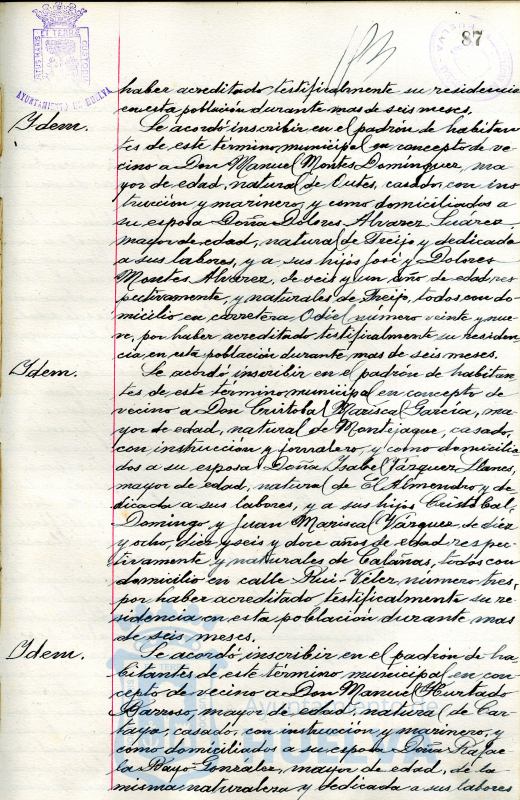 87
AYUNTAMIENTO DE HUELVA
haber acreditado testificalmente su residencia
en esta población durante mas de seis meses.
Idem.
Se acordó inscribir en el padrón de habitan-
tes de este término municipal en concepto de ve-
cino a Don Manuel Montes Domínguez, ma-
yor de edad, natural de Outes, casado, con ins-
trucción y marinero, y como domiciliados a
su esposa Doña Dolores Alvarez Suárez,
mayor de edad, natural de Freijo y dedicada
a sus labores, y a sus hijos José y Dolores
Montes Alvarez, de seis y un año de edad, res-
pectivamente, y naturales de Freijo, todos con do-
micilio en carretera Odiel número veinte y nue-
ve, por haber acreditado testificalmente su residen-
cia en esta población durante mas de seis meses.
Idem.
Se acordó inscribir en el padrón de habitan-
tes de este término municipal en concepto de
vecino a Don Cristobal Mariscal García, ma-
yor de edad, natural de Montejaque, casado,
con instrucción y jornalero, y como domicilia-
dos a su esposa Doña Isabel Vázquez Llanes,
mayor de edad, natural de El Almendro y de-
dicada a sus labores, y a sus hijos Cristobal,
Domingo y Juan Mariscal Vázquez, de diez
y ocho, diez y seis y doce años de edad respec-
tivamente y naturales de Calañas, todos con
domicilio en calle Rui-Vélez número tres,
por haber acreditado testificalmente su re-
sidencia en esta población durante mas
de seis meses.
Idem.
Se acordó inscribir en el padrón de ha-
bitantes de este término municipal en con-
cepto de vecino a Don Manuel Hurtado
Barroso, mayor de edad, natural de Car-
taya, casado, con instrucción y marinero, y
como domiciliados a su esposa Doña Rafae-
la Bayo González, mayor de edad, de la
misma naturaleza y dedicada a sus labores
Ayuntamiento de
HUELVA